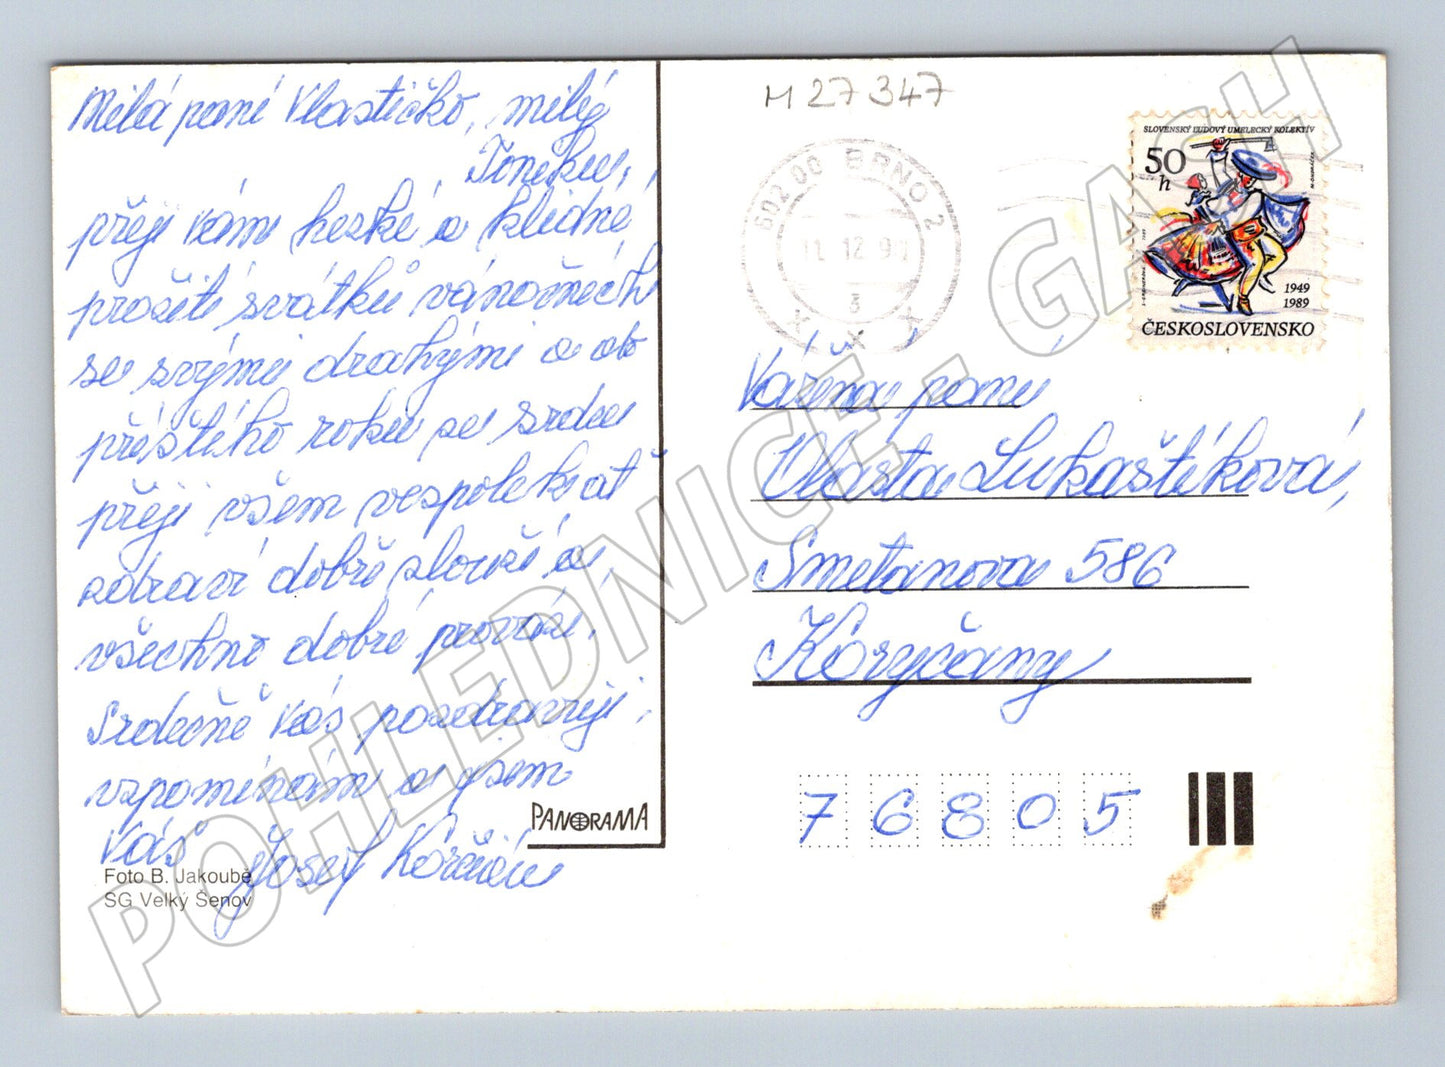 Milá paní Vlastičko, milý
Toníku,
přeji Vám hezké a klidné
prožití svátků vánočních
se svými drahými a do
příštího roku ze srdce
přeji všem vespolek ať
zdraví dobře slouží a
všechno dobré provází.
Srdečně Vás pozdravuji,
vzpomínám a jsem
Váš Josef
PANORAMA
Foto B. Jakoubě
SG Velký Šenov
M 27 347
602 00 BRNO 2
11. 12. 9
3
x x x
SLOVENSKÝ ĽUDOVÝ UMELECKÝ KOLEKTÍV
50 h
1949
1989
ČESKOSLOVENSKO
Vážená paní
Vlasta Lukaštíková,
Smetanova 586
Koryčany
76805
POHLEDNICE - GASH